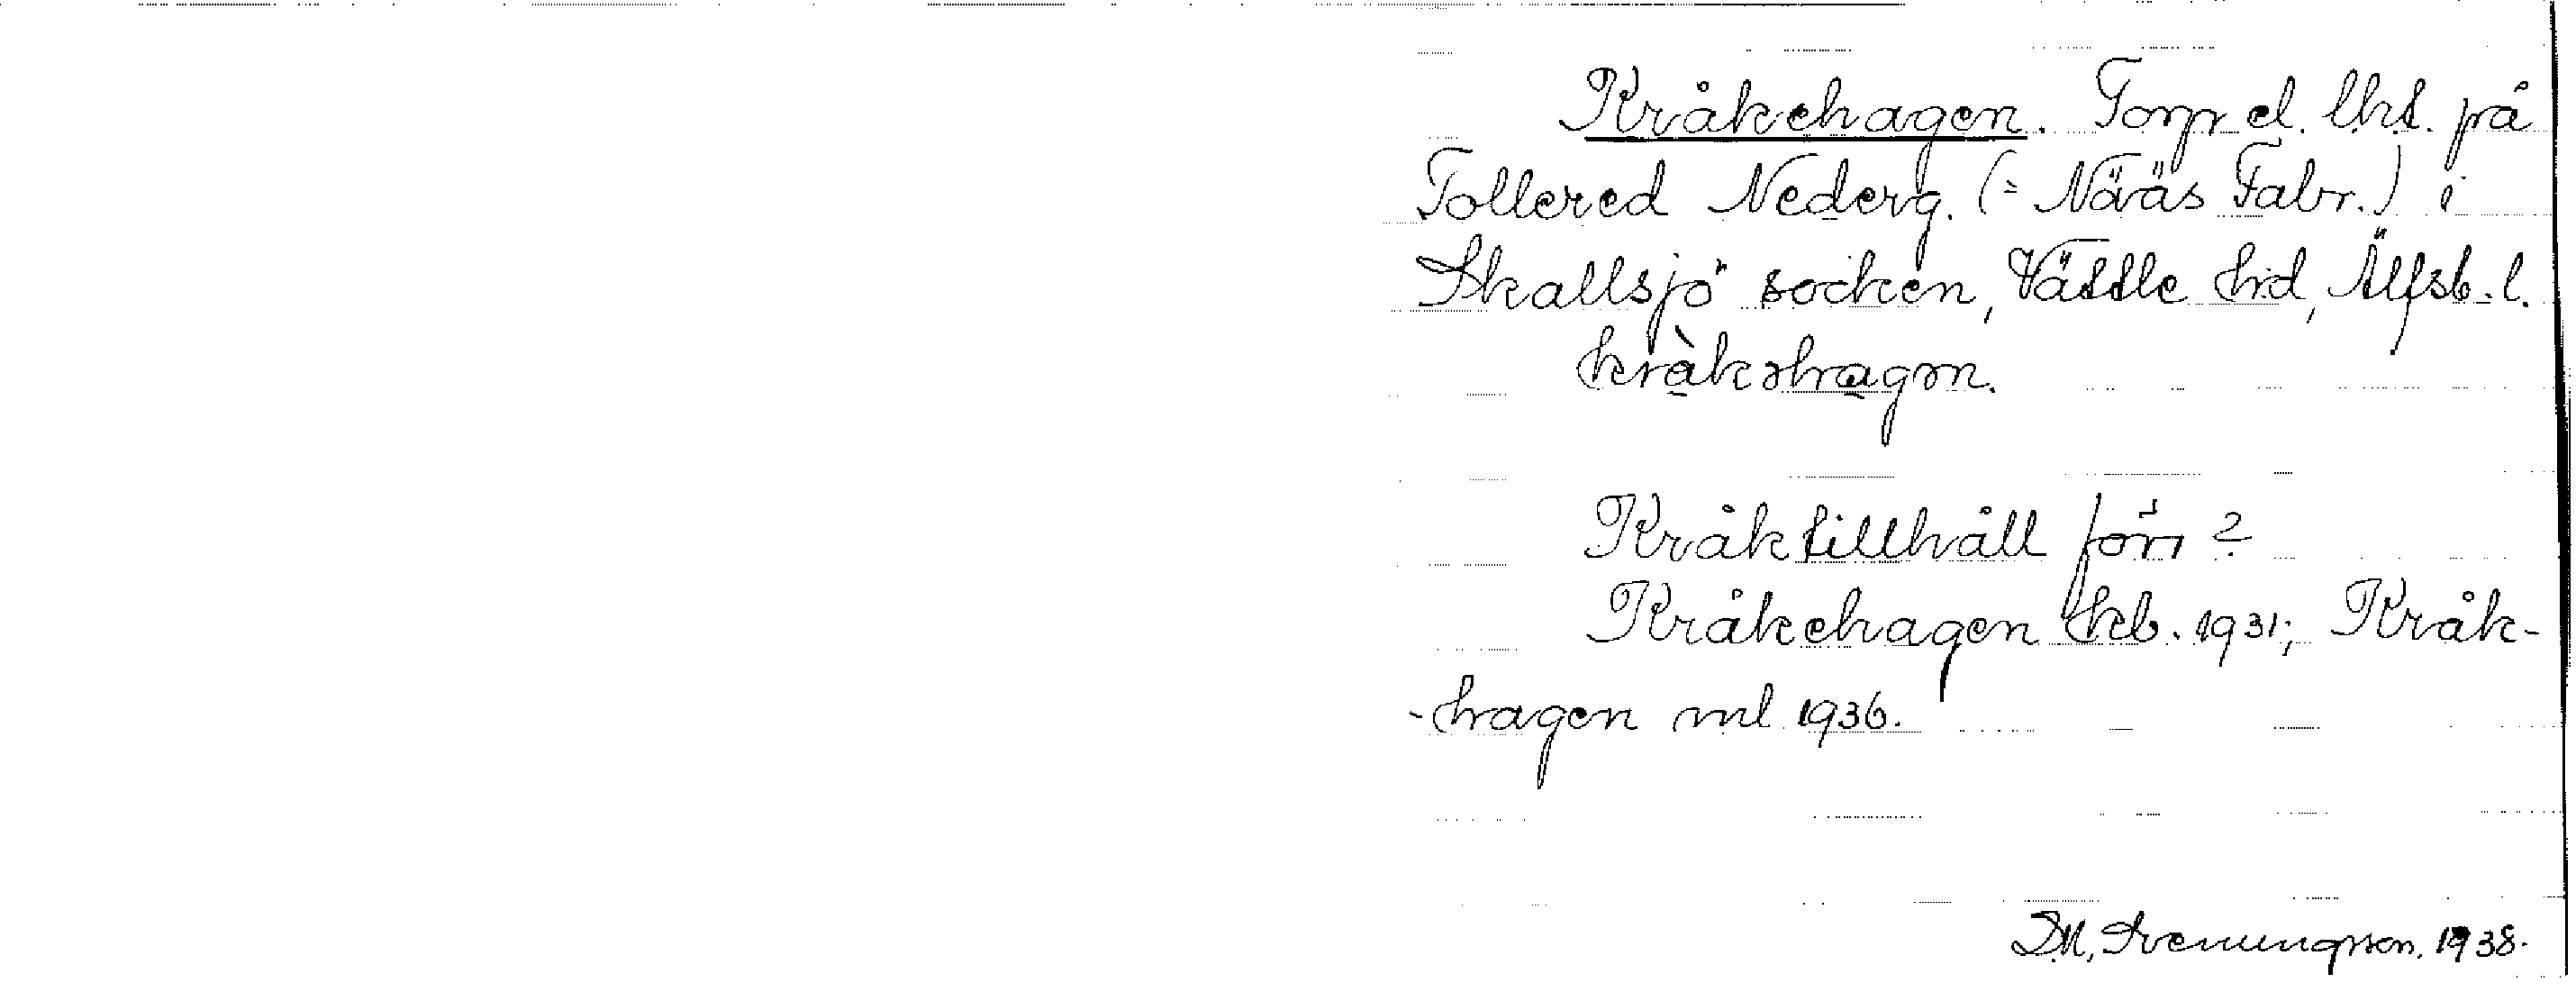 Kråkehagen. Torp el. lht. på
Tollered Nederg. (= Nääs Fabr.) i
Skallsjö socken, Vättle hd, Älfsb. l.
kràkəhagən.
Kråktillhåll förr?
Kråkehagen kb. 1931; Kråk-
-hagen ml 1936.
Svenungsson. 1938.